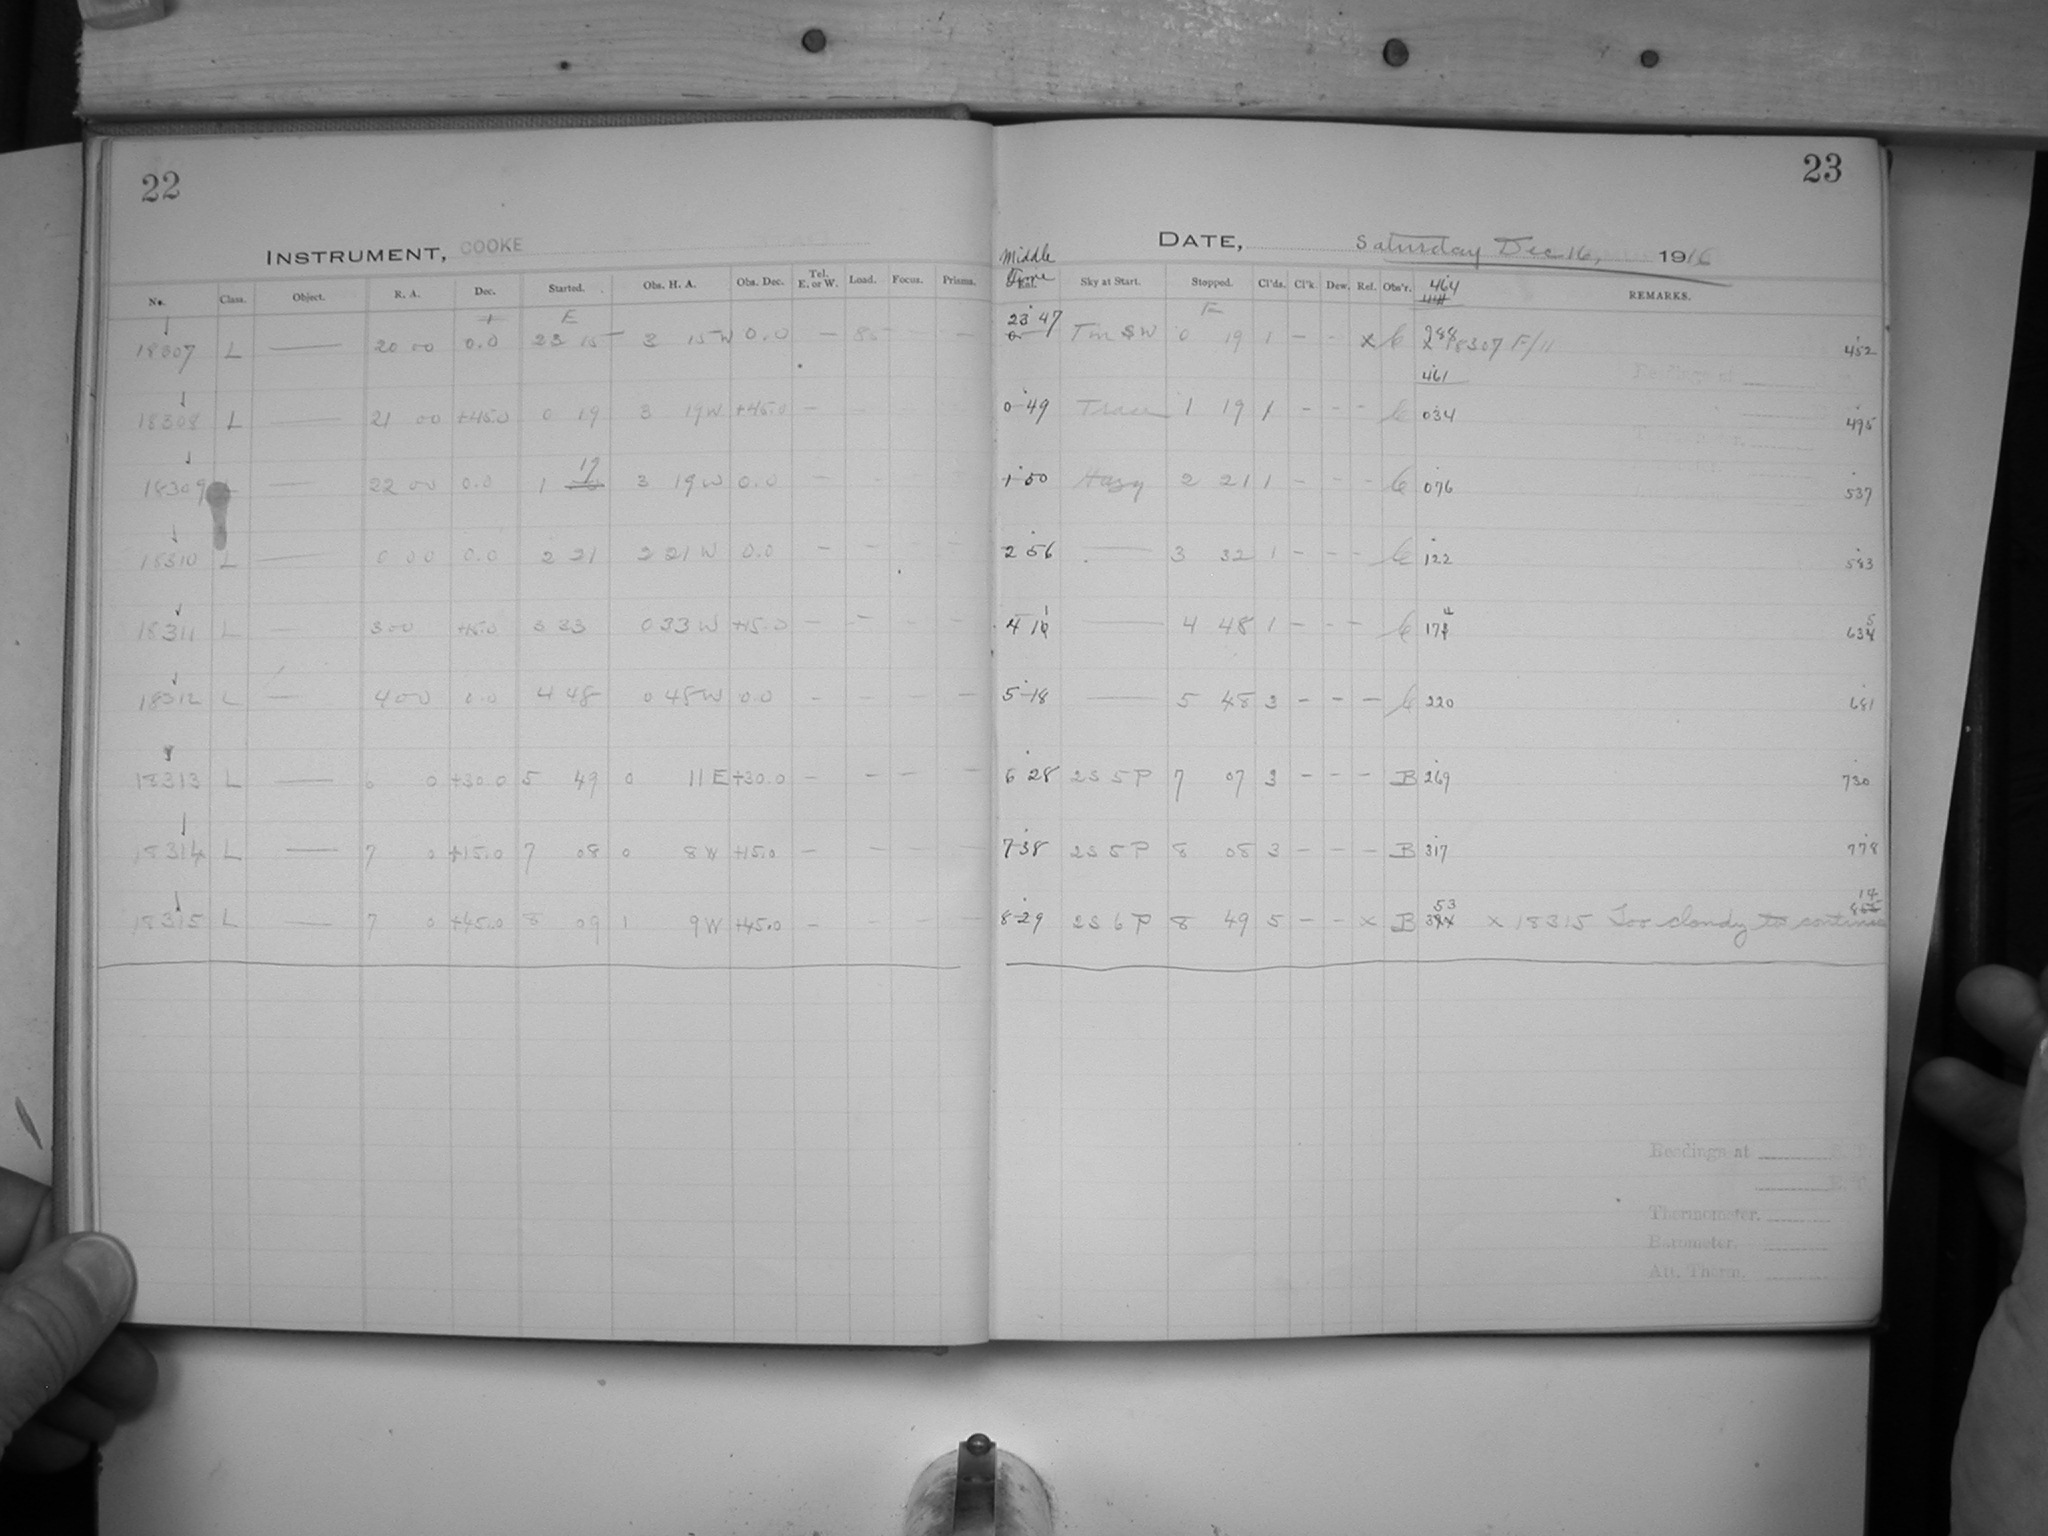 22
INSTRUMENT, COOKE
No. Class. Object. R. A. Dec. Started. Obs. H. A. Obs. Dec. Tel. E. or W. Load. Focus. Prisms.
+ E
18307 L — 20 00 0.0 23 15 3 15 W 0.0 — — —
18308 L — 21 00 +45.0 0 19 3 19 W +45.0 —
19
18309 L — 22 00 0.0 1 3 19 W 0.0 — —
18310 L — 0 00 0.0 2 21 2 21 W 0.0 — —
18311 L — 3 00 +15.0 3 33 0 33 W +15.0 — — — —
18312 L — 4 00 0.0 4 48 0 48 W 0.0 — — — —
18313 L — 6 0 +30.0 5 49 0 11 E +30.0 — — — —
18314 L — 7 0 +15.0 7 08 0 8 W +15.0 — — — —
18315 L — 7 0 +45.0 8 09 1 9 W +45.0 — — — —
23
DATE, Saturday Dec 16, 1916
Middle Time
Sky at Start. Stopped. Cl'ds. Cl'k. Dew. Ref. Obs'r. 464 REMARKS.
E
23 47 0 19 1 — — x C 288 x 18307 F/11 452
461
0 49 1 19 1 — — — C 034 495
1 50 Hazy 2 21 1 — — — C 076 537
2 56 — 3 32 1 — — — C 122 583
4 1 — 4 48 1 — — — C 17 4 63 5
5 18 — 5 48 3 — — — C 220 681
6 28 2S 5P 7 07 3 — — — B 269 730
7 38 2S 5P 8 08 3 — — — B 317 778
8 29 2S 6P 8 49 5 — — x B 3 53 x 18315 Too cloudy to continue 8 14
Readings at
Thermometer.
Barometer.
Att. Therm.